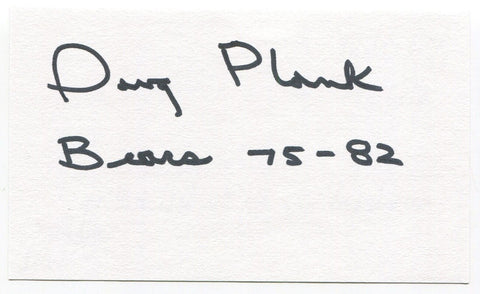 Doug Plank
Bears 75-82